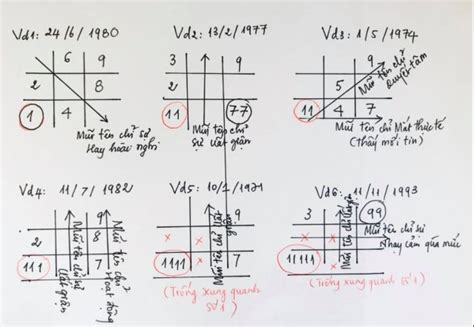 Vd1: 24/6/1980
6 9
2 8
1 4
Mũi tên chỉ sự
Hay hoài nghi
Vd2: 13/2/1977
3 9
2
11 77
Mũi tên chỉ
sự uất giận
Vd3: 1/5/1974
9
5
11 4 7
Mũi tên chỉ
Quyết tâm
Mũi tên chỉ Mặt thực tế
(thấy mới tin)
Vd4: 11/7/1982
9
2 8
111 7
Mũi tên chỉ sự
Uất giận
Mũi tên chỉ
Hoạt động
Vd5: 10/1/1921
9
2
1111
Mũi tên chỉ uất
giận
(Trống xung quanh
số 1)
Vd6: 11/11/1993
3 99
11111
Mũi tên chỉ
Mũi tên chỉ sự
Nhạy cảm quá mức
(Trống xung quanh
số 1)